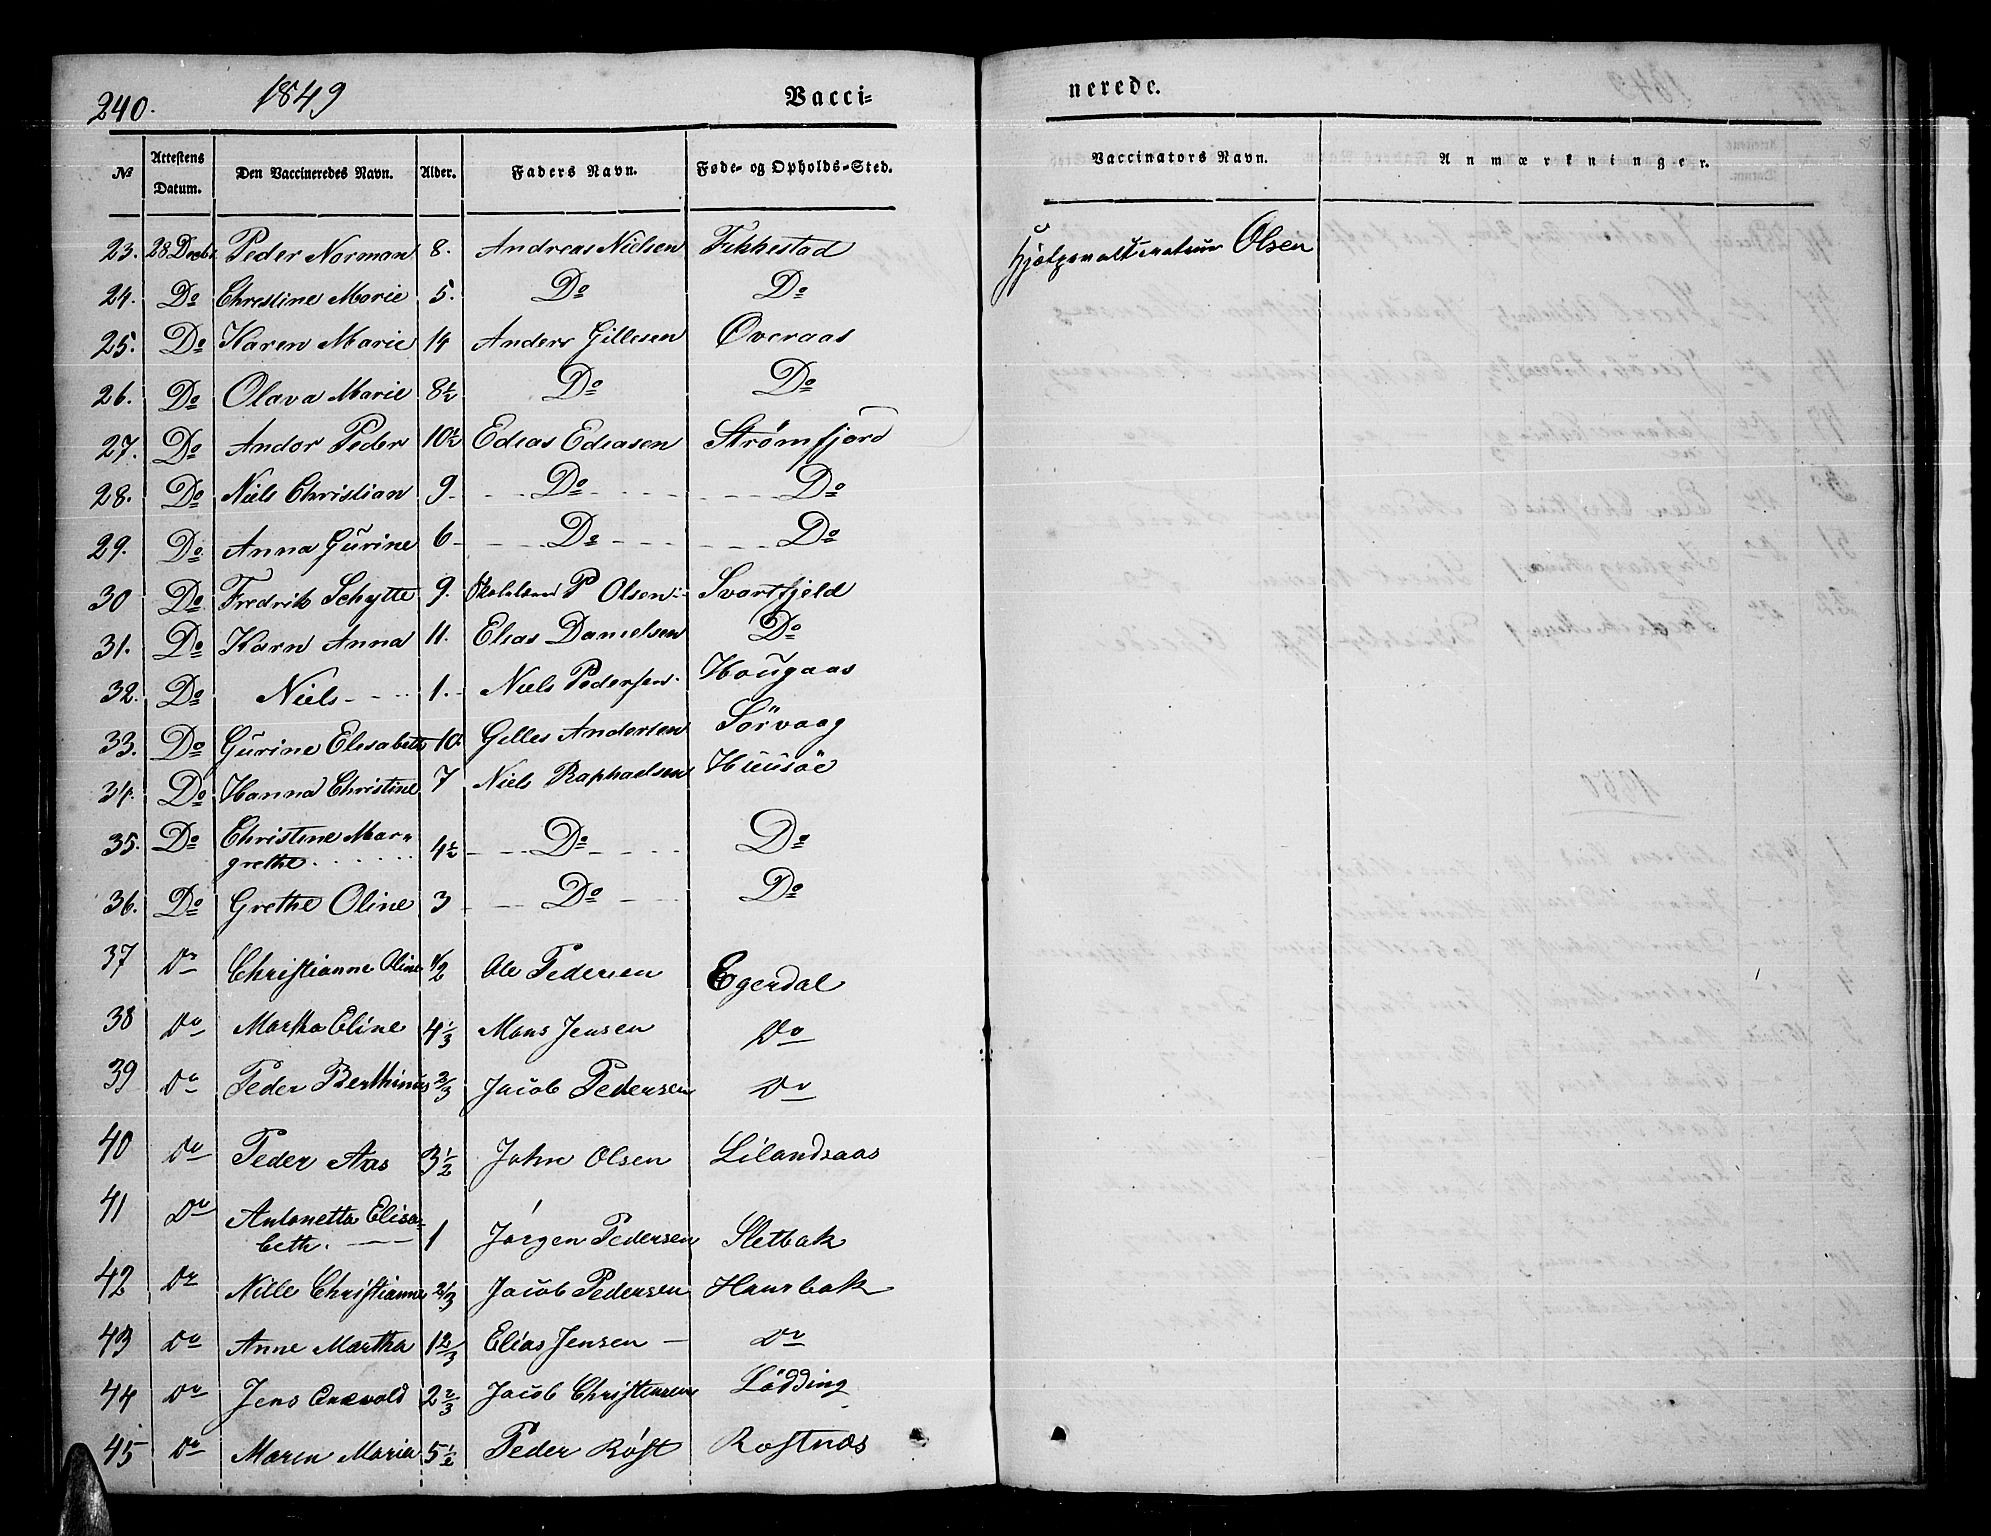 240. 1849 Vacci- nerede.
№ Attestens Datum. Den Vaccineredes Navn. Alder. Faders Navn. Føde- og Opholds-Sted. Vaccinators Navn. Anmærkninger.
23. 28 Decbr. Peder Norman 8. Andreas Nielsen Fikkestad Hjælpevaccinateur Olsen
24. Do Christine Marie 5. Do Do
25. Do Karen Marie 14 Anders Gillesen Overaas
26. Do Olava Marie 8½ Do Do
27. Do Andor Peder 10½ Edias Ediasen Strømfjord
28. Do Niels Christian 9 Do Do
29. Do Anna Gurine 6 Do Do
30 Do Fredrik Schytte 9. P Olsen Svartfjeld
31. Do Karn Anna 11. Elias Danielsen Do
32. Do Niels 1. Niels Pedersen Hougaas
33. Do Gurine Elisabeth 10. Gilles Andersen Sörvaag
34. Do Hanna Christine 7 Niels Raphaelsen Huusöe
35. Do Christine Mar-
grethe 4½ Do Do
36. Do Grethe Oline 3 Do Do
37 Do Christianne Oline ½ Ole Pedersen Egerdal
38 Do Martha Eline 4⅓ Mons Jensen Do
39 Do Peder Berthinus ⅔ Jacob Pedersen Do
40 Do Peder Aas 3½ John Olsen Lilandsaas
41 Do Antonetta Elisa-
beth. 1 Jørgen Pedersen Sletbak
42 Do Nille Christianne ⅔ Jacob Pedersen Haurbak
43 Do Anne Martha 1⅔ Elias Jensen Do
44 Do Jens 2⅔ Jacob Christensen Lödding
45 Do Maren Maria 5½ Peder Røst Rostnæs
1850